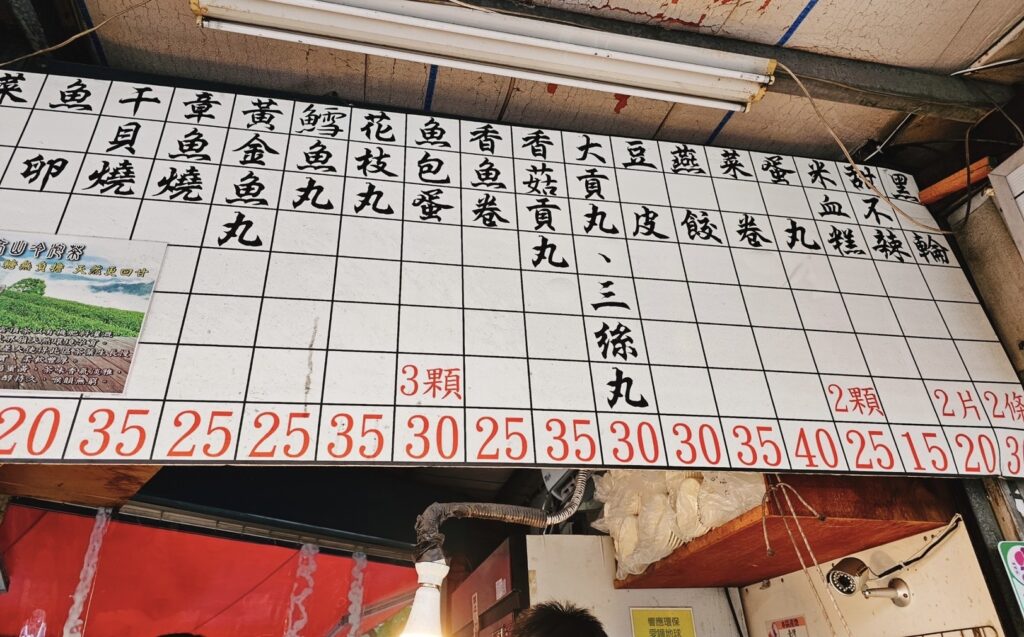 黑輪 2條
甜不辣 2片 20
米血糕 15
蛋丸 2顆 25
菜卷 40
燕餃 35
豆皮 30
大貢丸、三絲丸 30
香菇貢丸 35
香魚卷 25
魚包蛋 3顆 30
花枝丸 35
鱈魚丸 25
黃金魚丸 25
章魚燒 35
干貝燒 20
魚卵
菜
天然更回甘
響應環保